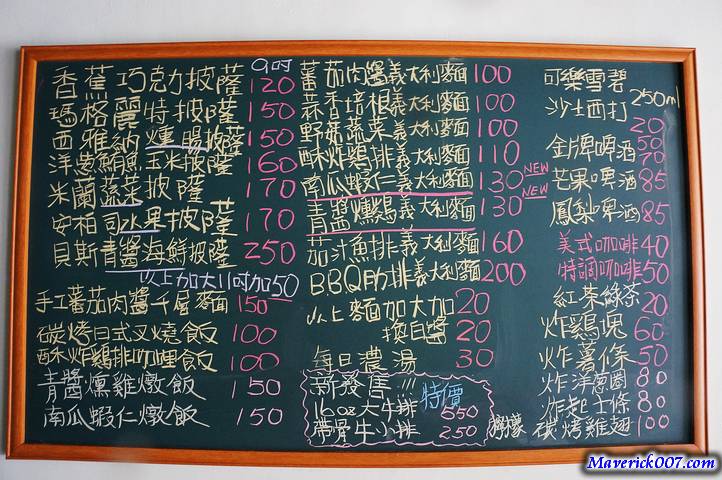 9吋
香蕉巧克力披薩 120
瑪格麗特披薩 150
西雅納燻腸披薩 150
洋蔥鮪魚玉米披薩 160
米蘭蔬菜披薩 170
安柏司水果披薩 170
貝斯青醬海鮮披薩 250
以上加大11吋加50
手工蕃茄肉醬千層麵 150
碳烤日式叉燒飯 100
酥炸雞排咖哩飯 100
青醬燻雞燉飯 150
南瓜蝦仁燉飯 150
蕃茄肉醬義大利麵 100
蒜香培根義大利麵 100
野菇蔬菜義大利麵 100
酥炸雞排義大利麵 110
南瓜蝦仁義大利麵 130 NEW
青醬燻鷄義大利麵 130 NEW
茄汁魚排義大利麵 160
B.B.Q肋排義大利麵 200
以上麵加大加 20
換白醬 20
每日濃湯 30
新發售!!! 特價
16oz大牛排 550
帶骨牛小排 250
可樂雪碧
沙士西打 250ml
20
金牌啤酒 50
70
芒果啤酒 85
鳳梨啤酒 85
美式咖啡 40
特調咖啡 50
紅茶綠茶 20
炸鷄塊 60
炸薯條 50
炸洋蔥圈 80
炸起士條 80
檸檬碳烤雞翅 100
Maverick007.com